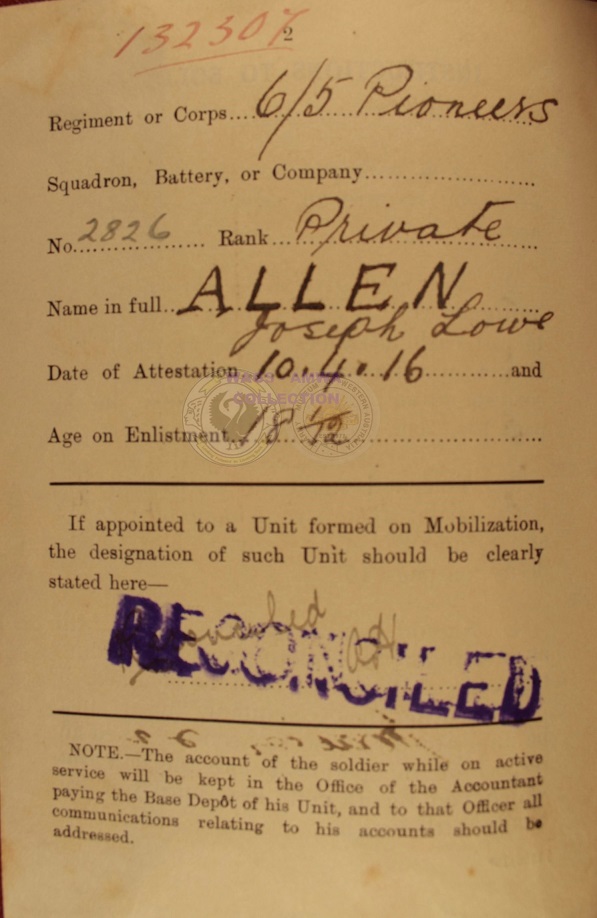 132307
2
Regiment or Corps....6/5 Pioneers
Squadron, Battery, or Company........................
No. 2826 Rank...Private
Name in full..ALLEN
Joseph Lowe
Date of Attestation 10.4.16............and
COLLECTION
Age on Enlistment...18 1/12........................
If appointed to a Unit formed on Mobilization,
the designation of such Unit should be clearly
stated here—
RECONCILED
NOTE.—The account of the soldier while on active
service will be kept in the Office of the Accountant
paying the Base Depôt of his Unit, and to that Officer all
communications relating to his accounts should be
addressed.